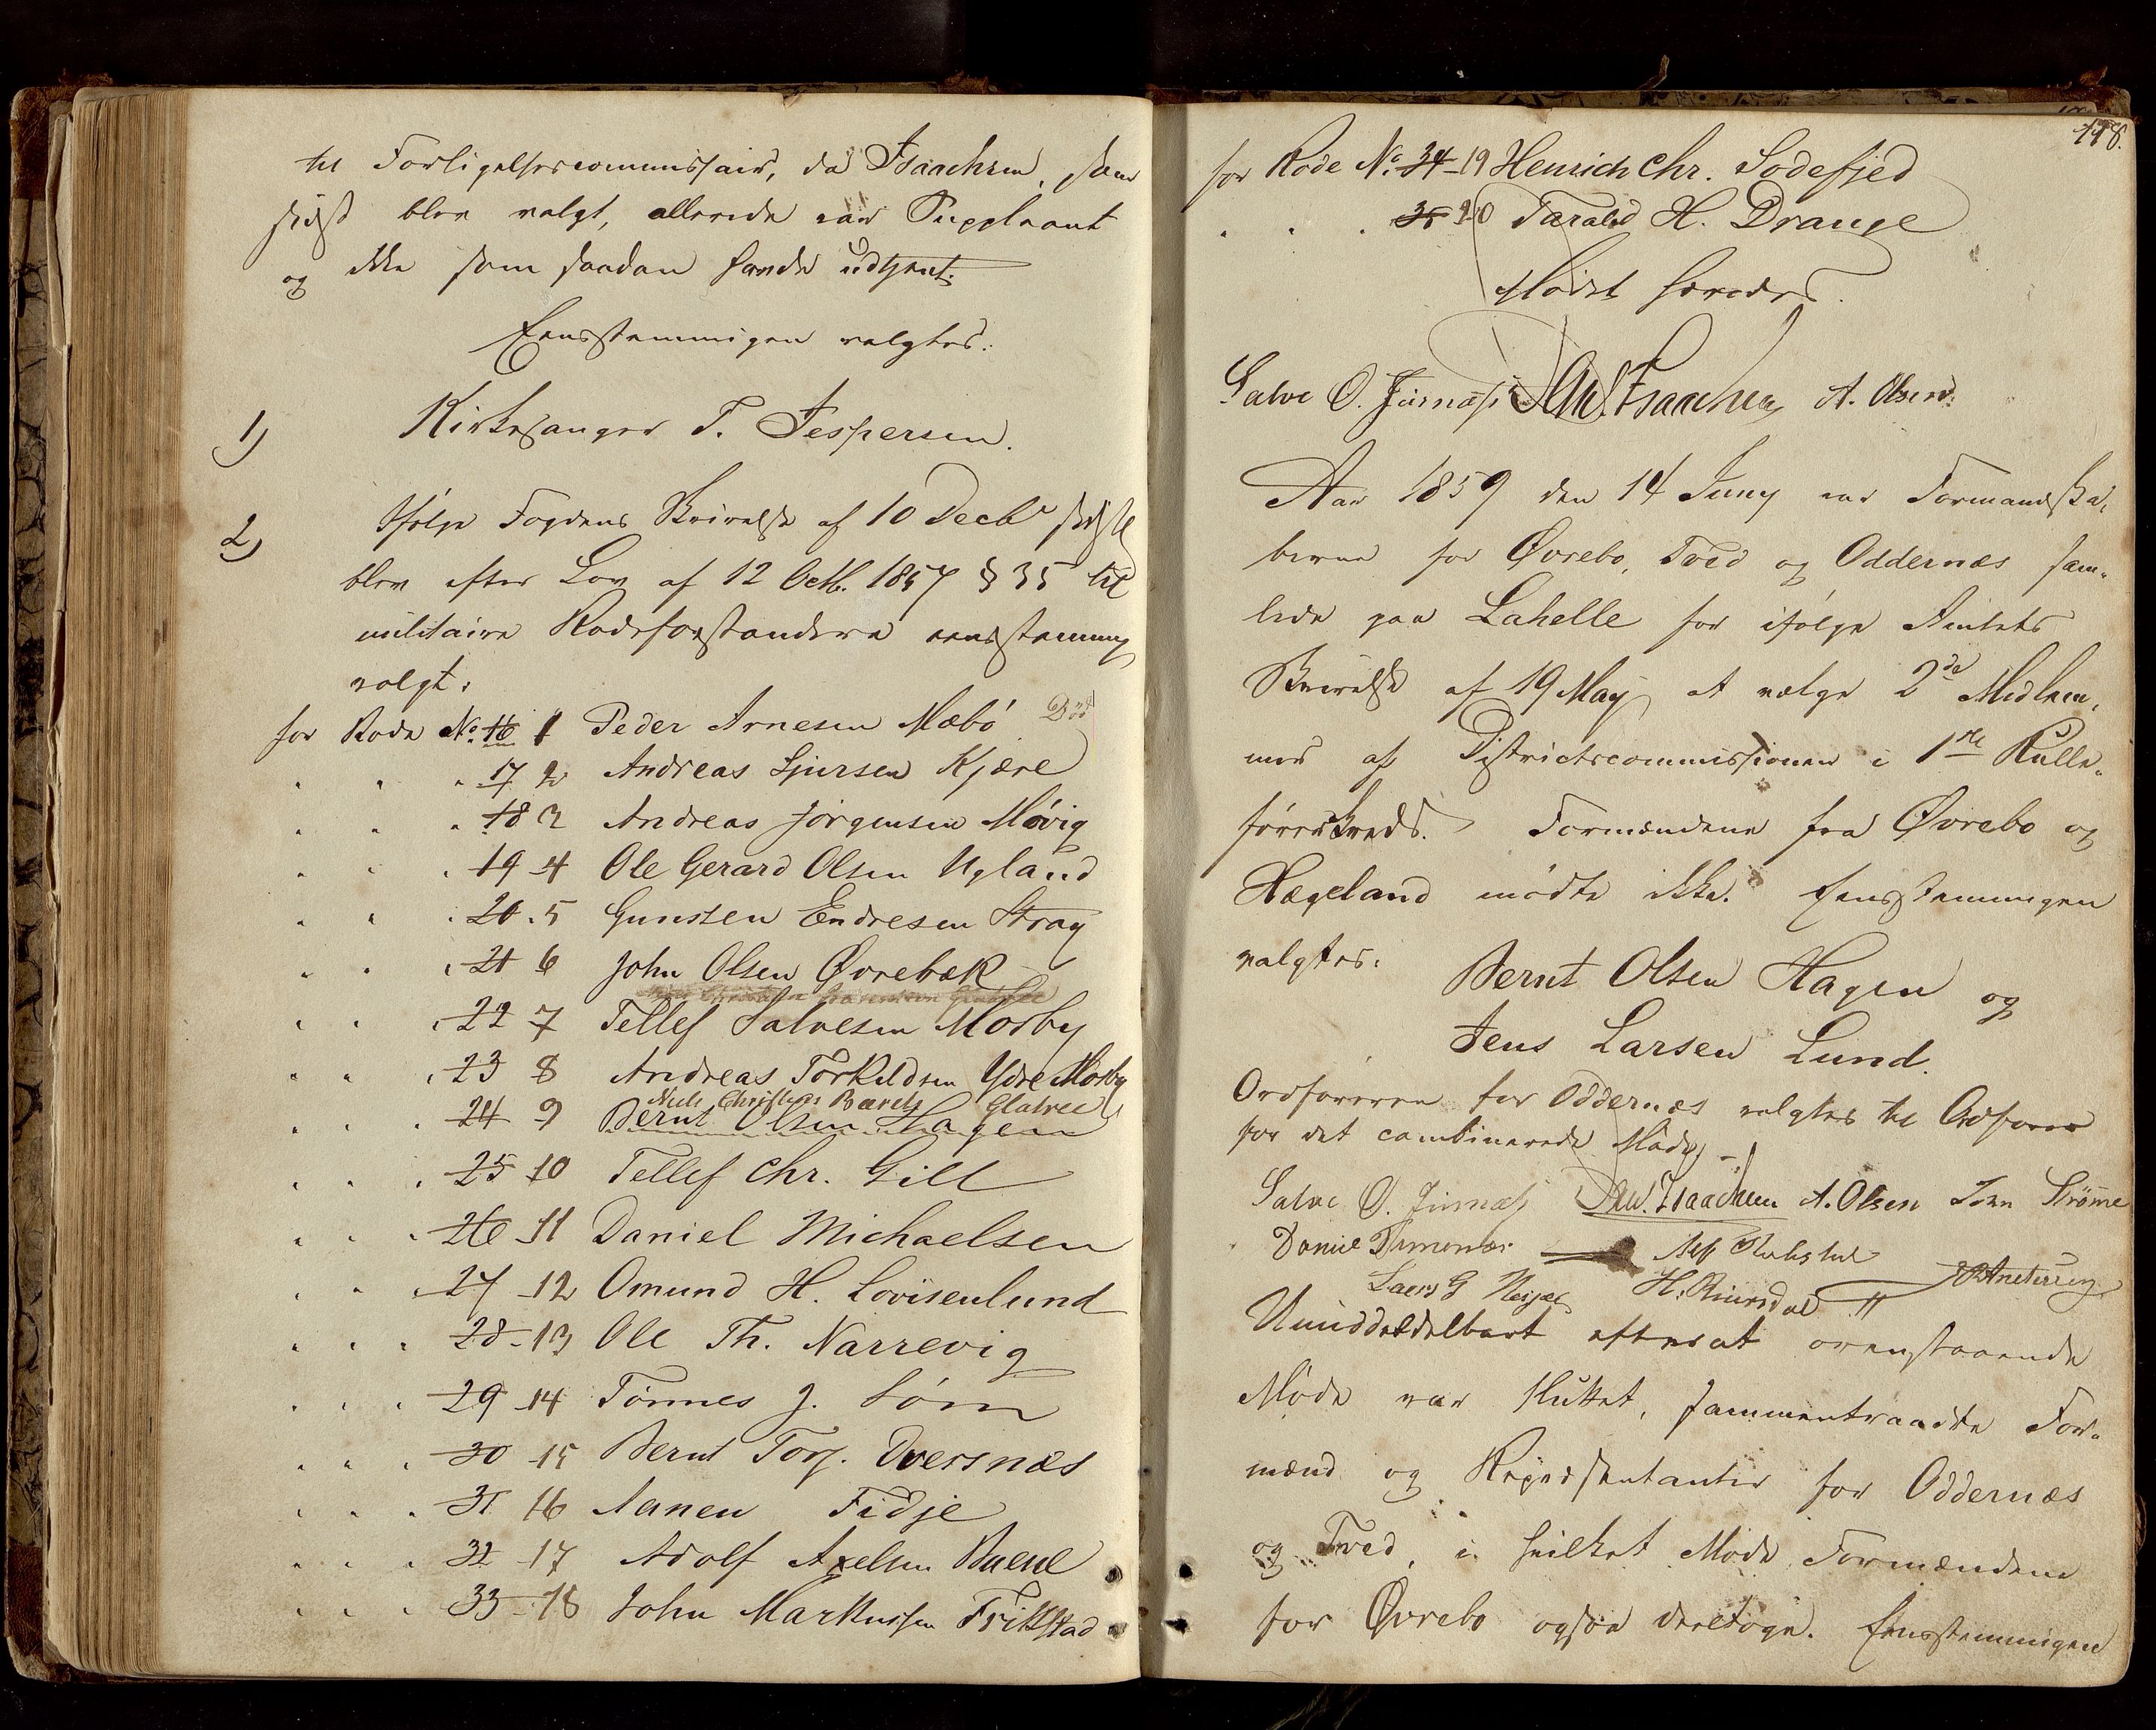 til Forligelsescommissair, da Isaachsen, som
sidst blev valgt, allerede var Suppleant
og ikke som saadan havde udtjent.
Eensstemmigen valgtes:
1) Kirkesanger T. Jespersen.
2) Ifølge Fogdens Skrivelse af 10 Decbr sidstl
blev efter Lov af 12 Octb. 1857 § 35 til
militaire Rodeforstandere eensstemmig
valgt:
for Rode No. 16 1 Peder Arnesen Mæbø Død
" " " 17 2 Andreas Sjursen Kjære
" " " 18 3 Andreas Jørgensen Møvig
" " " 19 4 Ole Gerard Olsen Ugland
" " " 20 5 Gunsten Endresen Strag
" " " 21 6 John Olsen Øvrebæk
" " " 22 7 Tellef Salvesen Mosby
" " " 23 8 Andreas Torkildsen Ydre Mosby
Niels Christian Glatved
" " " 24 9 Bernt Olsen Hagen
" " " 25 10 Tellef Chr. Gill
" " " 26 11 Daniel Michaelsen
" " " 27 12 Omund H. Lovisenlund
" " " 28 13 Ole Th. Narrevig
" " " 29 14 Tønnes J. Søm
" " " 30 15 Bernt Torj. Dversnæs
" " " 31 16 Aanen Fidje
" " " 32 17 Adolf Axelsen Buene
" " " 33 18 John Markussen Frikstad
118.
for Rode No. 34 19 Henrich Chr. Sodefjed
" " " 35 20 Tarald H. Drange
Mødet hævedes.
Salve O. Isaachsen A. Olsen
Aar 1859 den 14 Juny var Formandska-
berne for Øvrebo, Tved og Oddernæs sam-
lede paa Lahelle for ifølge Amtets
Skrivelse af 19 May at vælge 2de Medlem-
mer af Districtscommissionen i 1ste Rulle-
førerkreds. Formændene fra Øvrebo og
Hægeland mødte ikke. Eensstemmigen
valgtes:
Bernt Olsen Hagen og
Jens Larsen Lund.
Ordføreren for Oddernæs valgtes til Ordfører
for det combinerede Møde,
Salve O. Isaachsen A. Olsen Strømme
Daniel
Umiddeldelbart efterat ovenstaaende
Møde var sluttet, sammentraadte For-
mænd og Repræsentanter for Oddernæs
og Tved, i hvilket Møde Formændene
for Øvrebo ogsaa deeltoge. Eensstemmigen